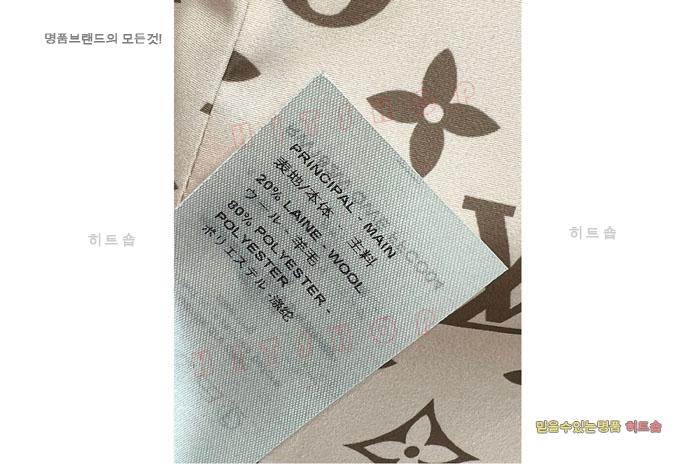 명품브랜드의 모든것!
PRINCIPAL - MAIN
表地/本体 - 主料
20% LAINE - WOOL
ウール - 羊毛
80% POLYESTER -
POLYESTER
ポリエステル - 涤纶
HITTPOP
히트숍
히트숍
믿을수있는명품 히트숍